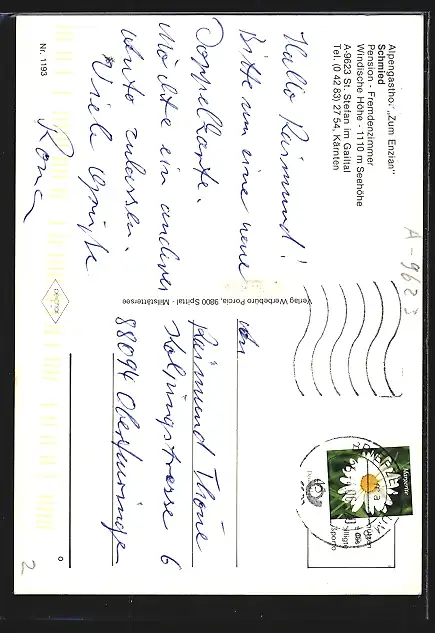 Alpengasthof „Zum Enzian"
Schmied
Pension - Fremdenzimmer
Windische Höhe - 1110 m Seehöhe
A-9623 St. Stefan im Gailtal
Tel. (0 42 83) 27 54, Kärnten
Hallo Raimund!
Bitte um eine neue
Doppelkarte.
Möchte ein anderes
Auto zulassen.
Viele Grüße
Nr. 1193
Verlag Werbebüro Porcia, 9800 Spittal - Millstättersee
A-9623
An
Raimund Thöne
Kolpingstrasse 6
88094 Oberteuringen
2